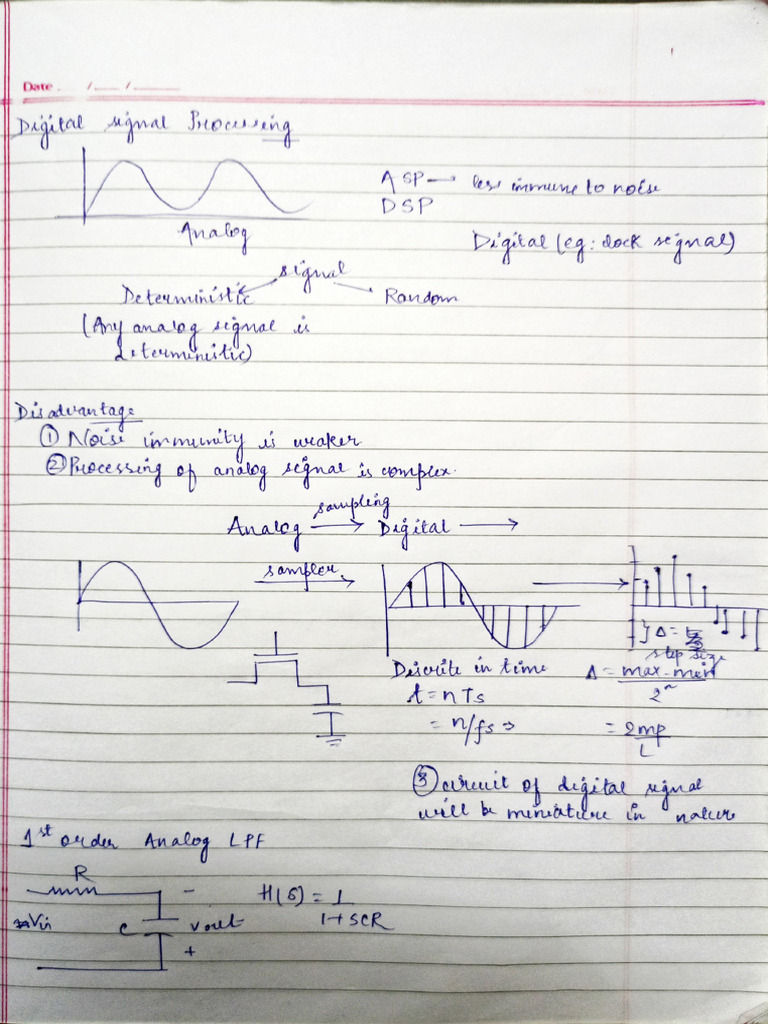 Date __/__/____
Digital signal Processing
ASP → less immune to noise
DSP
Analog
Digital (eg: clock signal)
signal
Deterministic
Random
(Any analog signal is
deterministic)
Disadvantage
① Noise immunity is weaker
② Processing of analog signal is complex.
sampling
Analog → Digital →
sampler
Δ =
step size
Discrite in time
Δ = max - min / 2^n
t = nTs
= n/fs ⇒
= 2mp / L
③ circuit of digital signal
will be miniature in nature
1st order Analog LPF
R
-
H(s) = 1 / 1+SCR
Vin
C
Vout
+